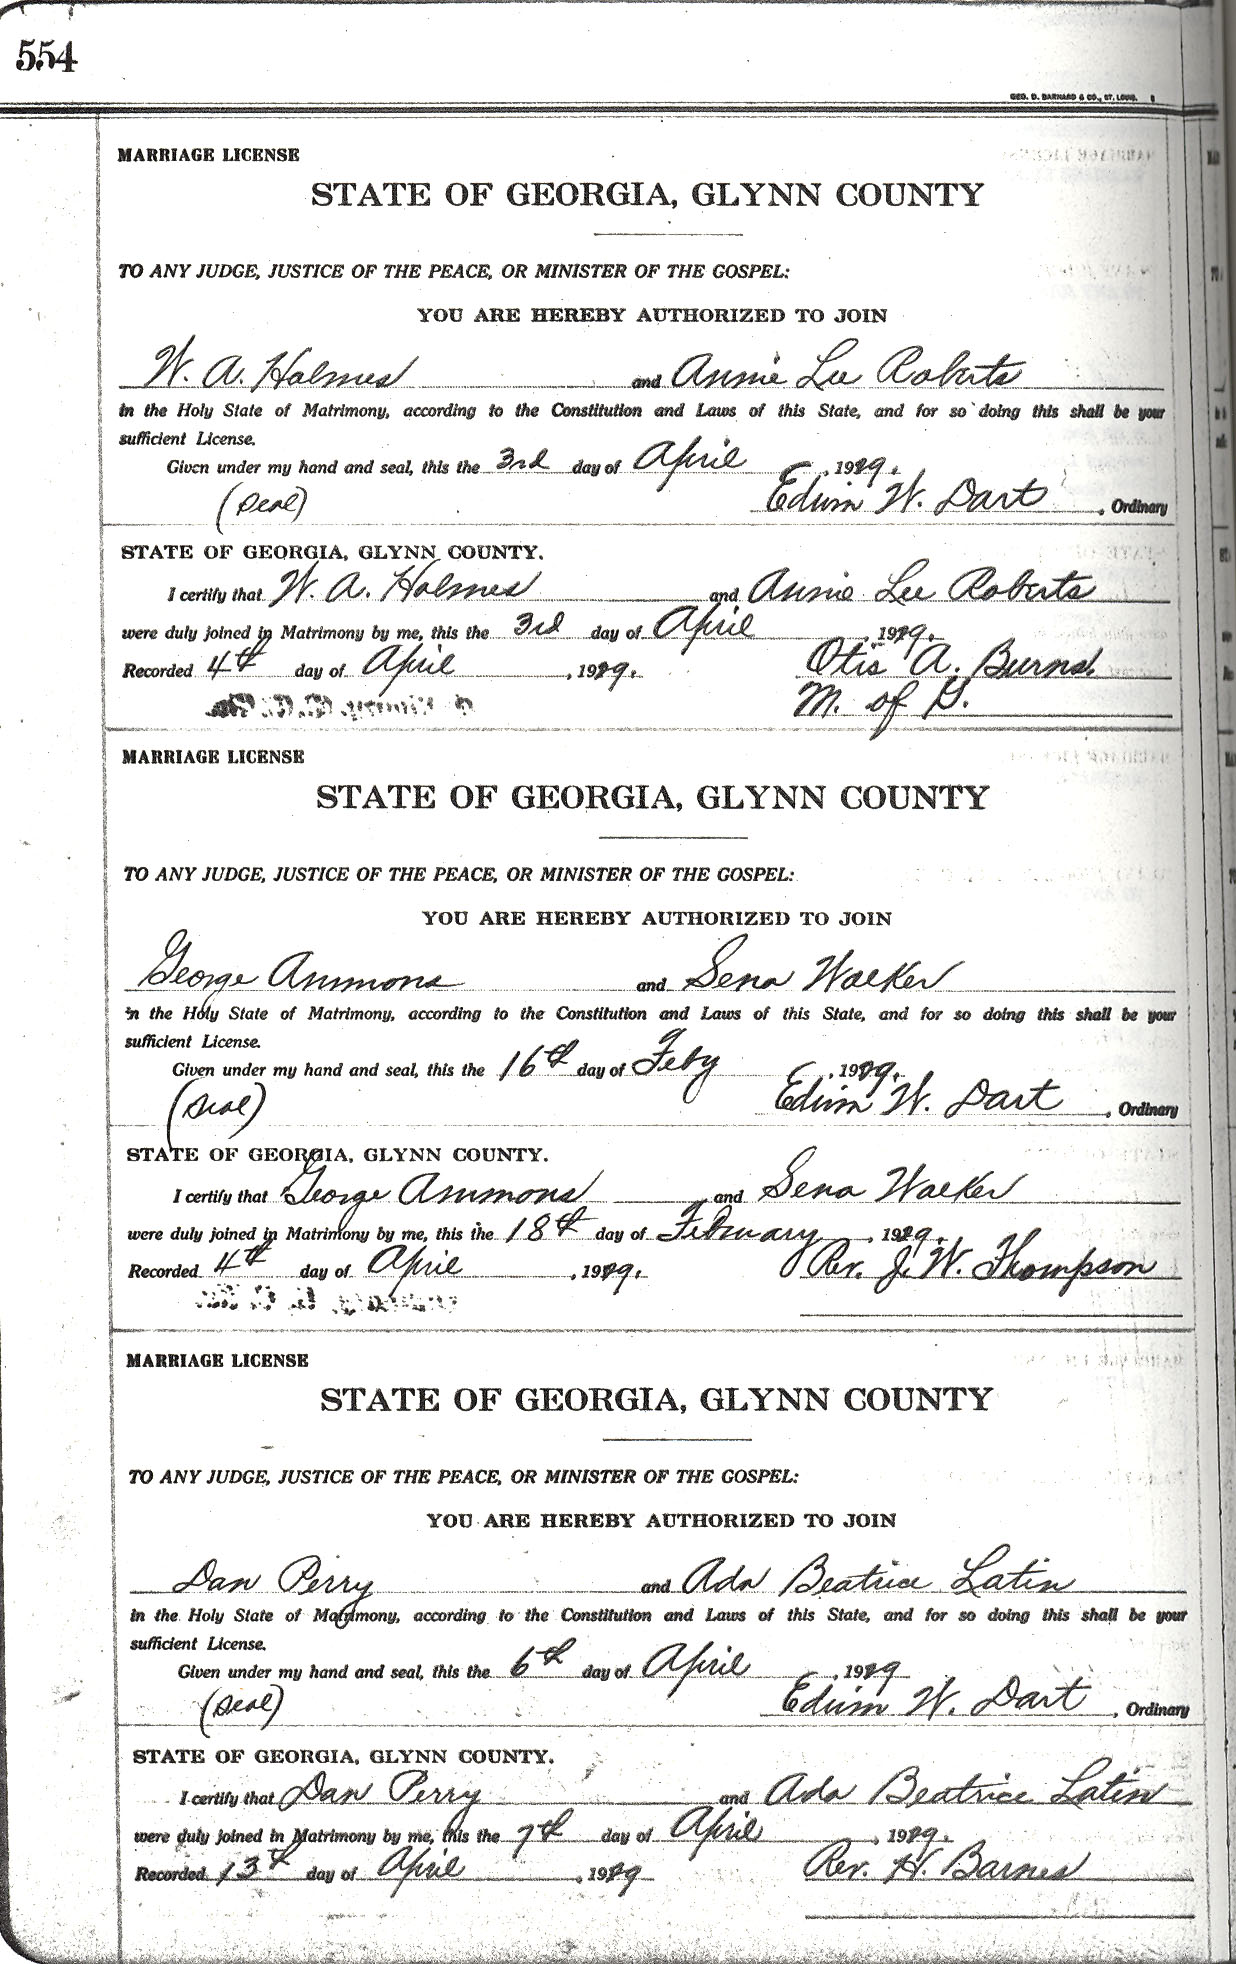 554
GEO. D. BARNARD & CO., ST. LOUIS.
MARRIAGE LICENSE
STATE OF GEORGIA, GLYNN COUNTY
TO ANY JUDGE, JUSTICE OF THE PEACE, OR MINISTER OF THE GOSPEL:
YOU ARE HEREBY AUTHORIZED TO JOIN
W. A. Holmes and Annie Lee Roberts
in the Holy State of Matrimony, according to the Constitution and Laws of this State, and for so doing this shall be your
sufficient License.
Given under my hand and seal, this the 3rd day of April, 1929.
(Seal) Edwin W. Dart, Ordinary
STATE OF GEORGIA, GLYNN COUNTY.
I certify that W. A. Holmes and Annie Lee Roberts
were duly joined in Matrimony by me, this the 3rd day of April, 1929.
Recorded 4th day of April, 1929. Otis A. Burns.
M. of G.
MARRIAGE LICENSE
STATE OF GEORGIA, GLYNN COUNTY
TO ANY JUDGE, JUSTICE OF THE PEACE, OR MINISTER OF THE GOSPEL:
YOU ARE HEREBY AUTHORIZED TO JOIN
George Ammons and Sena Walker
in the Holy State of Matrimony, according to the Constitution and Laws of this State, and for so doing this shall be your
sufficient License.
Given under my hand and seal, this the 16th day of Feby, 1929.
(Seal) Edwin W. Dart, Ordinary
STATE OF GEORGIA, GLYNN COUNTY.
I certify that George Ammons and Sena Walker
were duly joined in Matrimony by me, this the 18th day of February, 1929.
Recorded 4th day of April, 1929. Rev. J. W. Thompson
MARRIAGE LICENSE
STATE OF GEORGIA, GLYNN COUNTY
TO ANY JUDGE, JUSTICE OF THE PEACE, OR MINISTER OF THE GOSPEL:
YOU ARE HEREBY AUTHORIZED TO JOIN
Dan Perry and Ada Beatrice Latin
in the Holy State of Matrimony, according to the Constitution and Laws of this State, and for so doing this shall be your
sufficient License.
Given under my hand and seal, this the 6th day of April, 1929
(Seal) Edwin W. Dart, Ordinary
STATE OF GEORGIA, GLYNN COUNTY.
I certify that Dan Perry and Ada Beatrice Latin
were duly joined in Matrimony by me, this the 7th day of April, 1929.
Recorded 13th day of April, 1929 Rev. H. Barnes